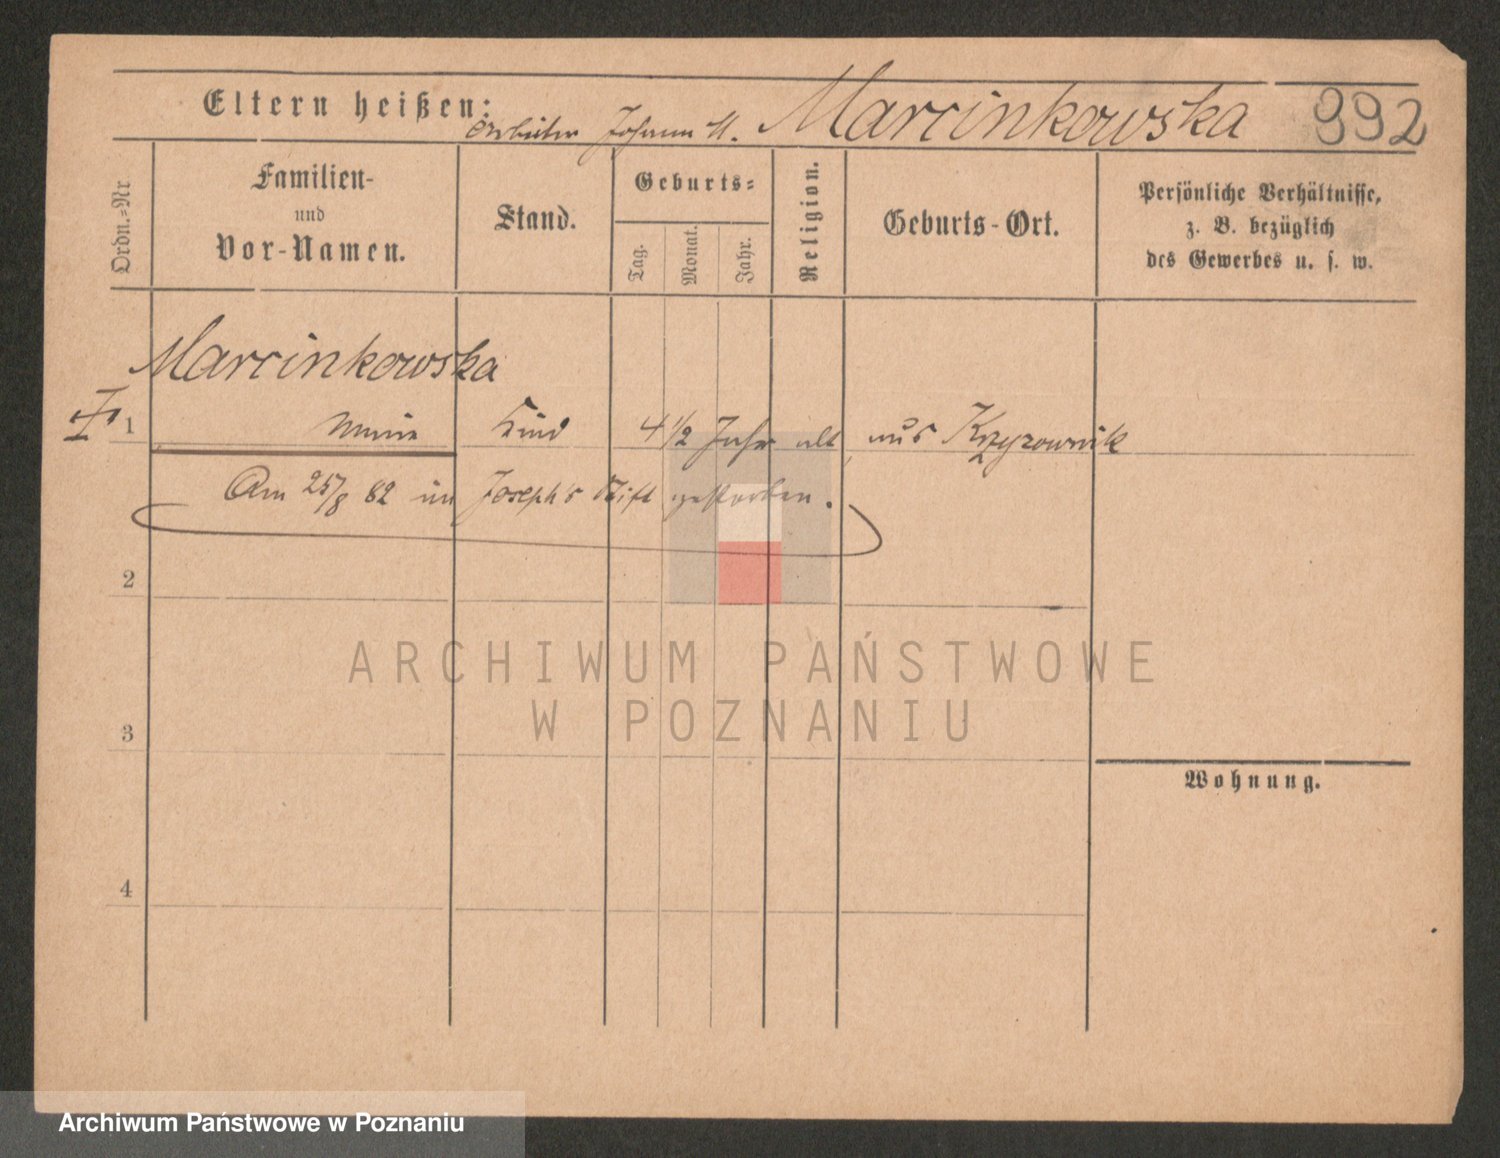 Eltern heißen: Arbeiter Johann M. Marcinkowska 992
Ordn.-Nr
Familien-
und
Vor-Namen.
Stand.
Geburts-
Tag.
Monat.
Jahr.
Religion.
Geburts-Ort.
Persönliche Verhältnisse,
z. B. bezüglich
des Gewerbes u. s. w.
Marcinkowska
1 Kind 4 1/2 Jahr alt aus Krzyzownik
Am 25/8 82 im Joseph's Stift gestorben.
2
3
4
Wohnung.
ARCHIWUM PAŃSTWOWE
W POZNANIU
Archiwum Państwowe w Poznaniu